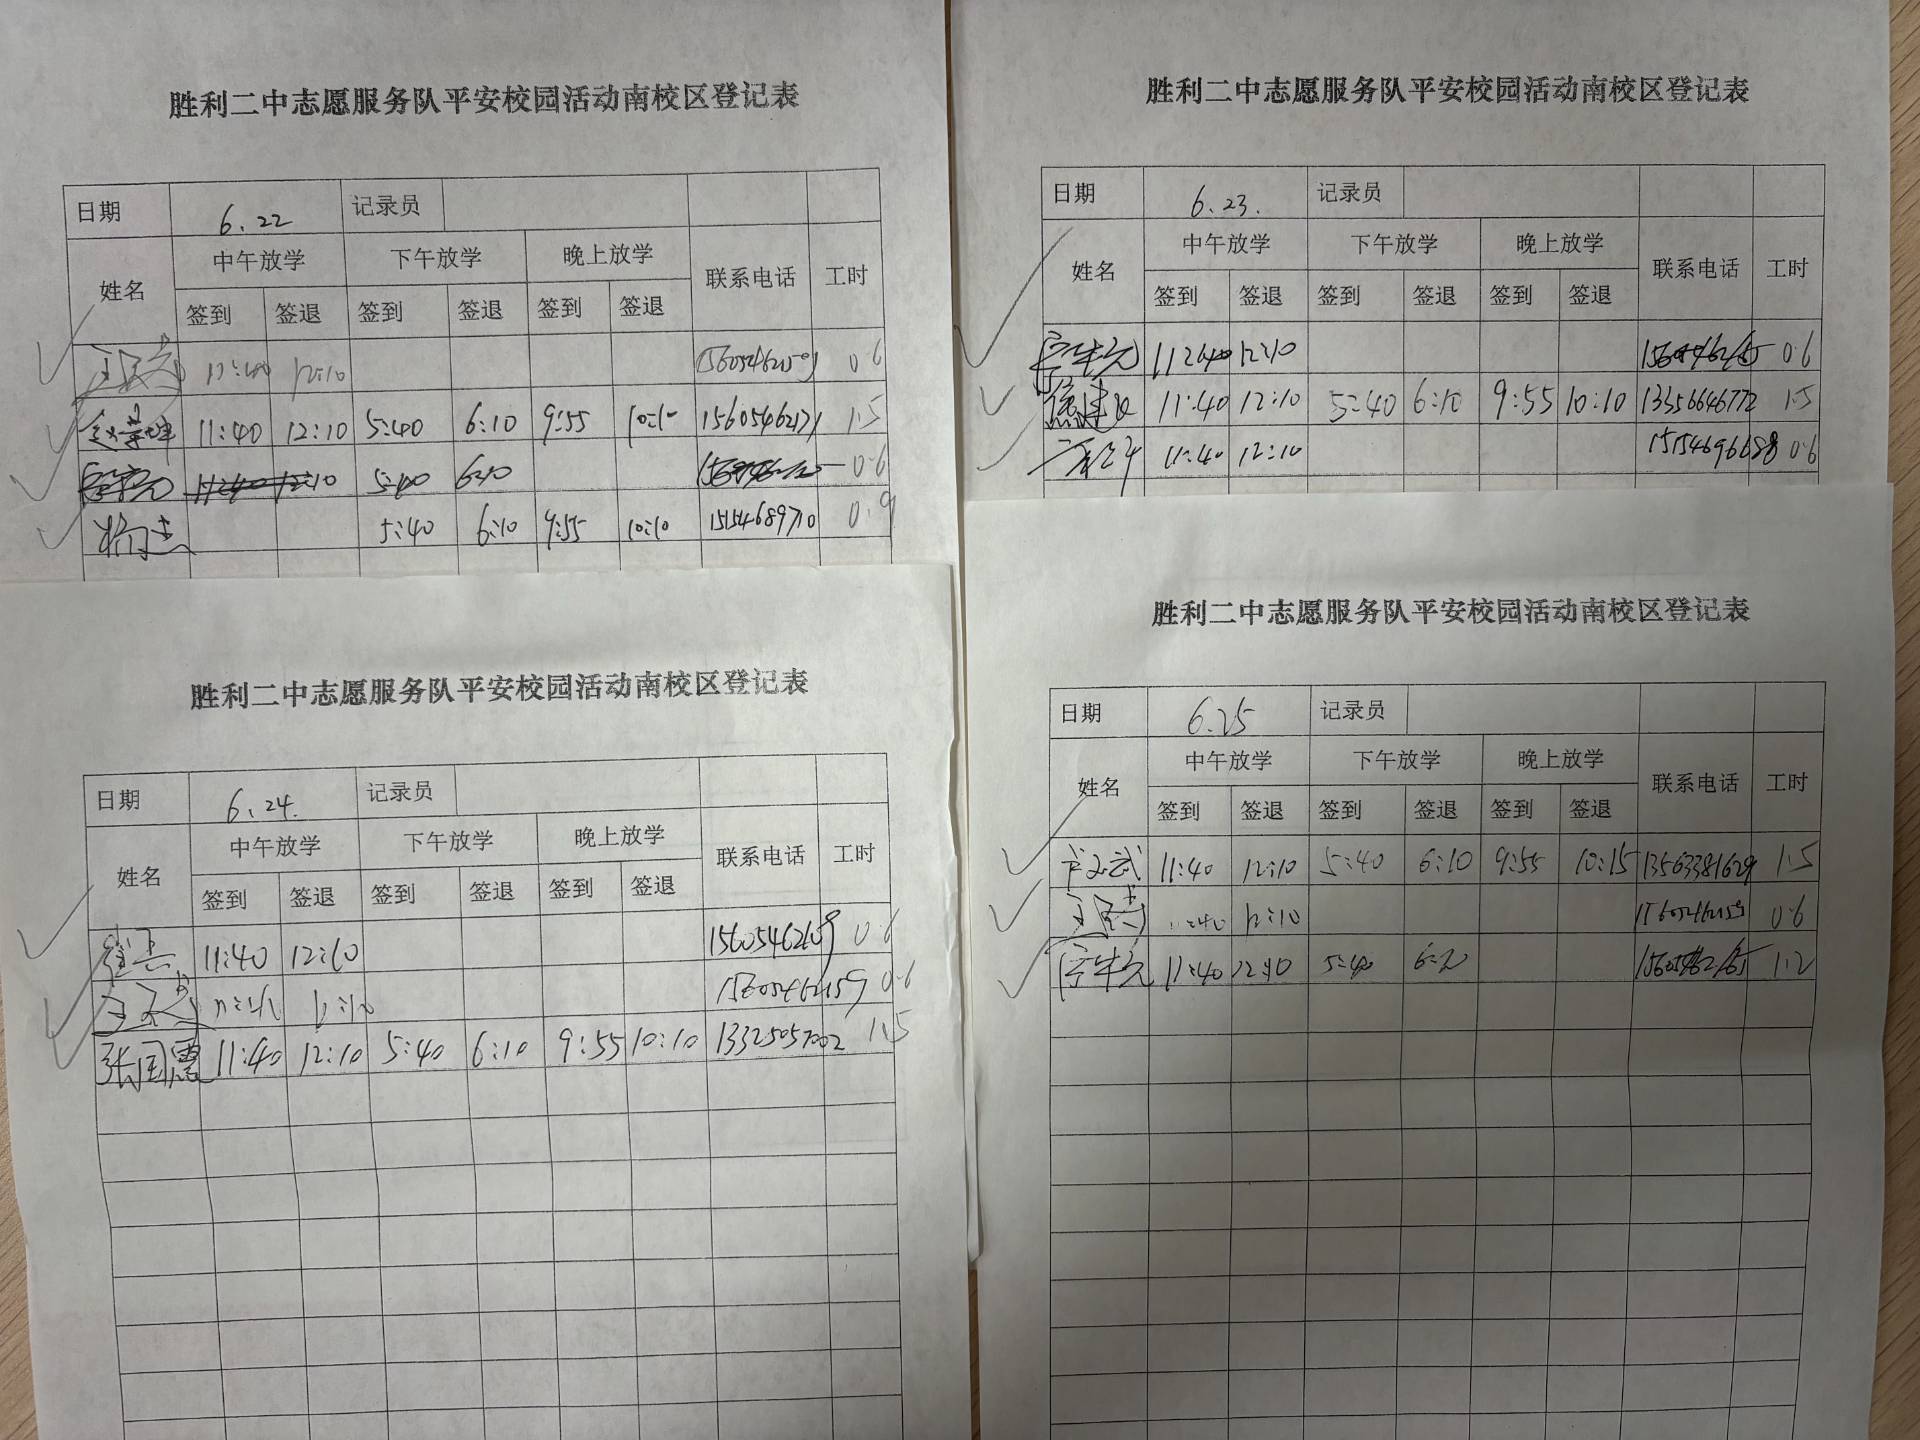 胜利二中志愿服务队平安校园活动南校区登记表
日期 6.22 记录员
姓名 中午放学 下午放学 晚上放学 联系电话 工时
签到 签退 签到 签退 签到 签退
11:40 12:10 0.6
11:40 12:10 5:40 6:10 9:55 10:10 15605462171 1.5
5:40 6:10 0.6
5:40 6:10 9:55 10:10 15154689710 0.9
胜利二中志愿服务队平安校园活动南校区登记表
日期 6.23. 记录员
姓名 中午放学 下午放学 晚上放学 联系电话 工时
签到 签退 签到 签退 签到 签退
12:10 0.6
11:40 12:10 5:40 6:10 9:55 10:10 13356646772 1.5
11:40 12:10 15154696688 0.6
胜利二中志愿服务队平安校园活动南校区登记表
日期 6.24. 记录员
姓名 中午放学 下午放学 晚上放学 联系电话 工时
签到 签退 签到 签退 签到 签退
11:40 12:10 0.6
15605462159 0.6
张国震 11:40 12:10 5:40 6:10 9:55 10:10 13325057002 1.5
胜利二中志愿服务队平安校园活动南校区登记表
日期 6.25 记录员
姓名 中午放学 下午放学 晚上放学 联系电话 工时
签到 签退 签到 签退 签到 签退
11:40 12:10 5:40 6:10 9:55 10:15 13563381629 1.5
12:10 0.6
11:40 12:10 5:40 1.2